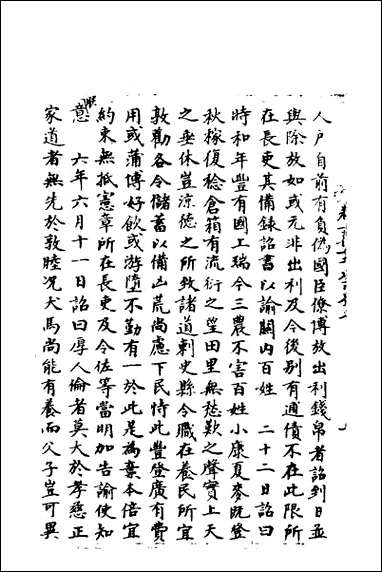 人户自前有負偽國臣僚博放出利錢帛者詔到日並
與除放如或元非出利及今後别有逋債不在此限所
在長吏其備錄詔書以諭關内百姓　二十二日詔曰
時和年豐有國上瑞今三農不害百姓小康夏麥既登
秋稼復稔倉箱有流衍之望田里無愁歎之聲實上天
之垂休豈涼德之所致諸道刺史縣令職在養民所宜
敦勸各令儲蓄以備凶荒尚慮下民恃此豐登廣有費
用或蒲博好飲或游墮不勤有一於此是為棄本倍宜
約束無抵憲章所在長吏及令佐等當明加告諭使知
朕意　六年六月十一日詔曰厚人倫者莫大於孝慈正
家道者無先於敦睦况犬馬尚能有養而父子豈可異